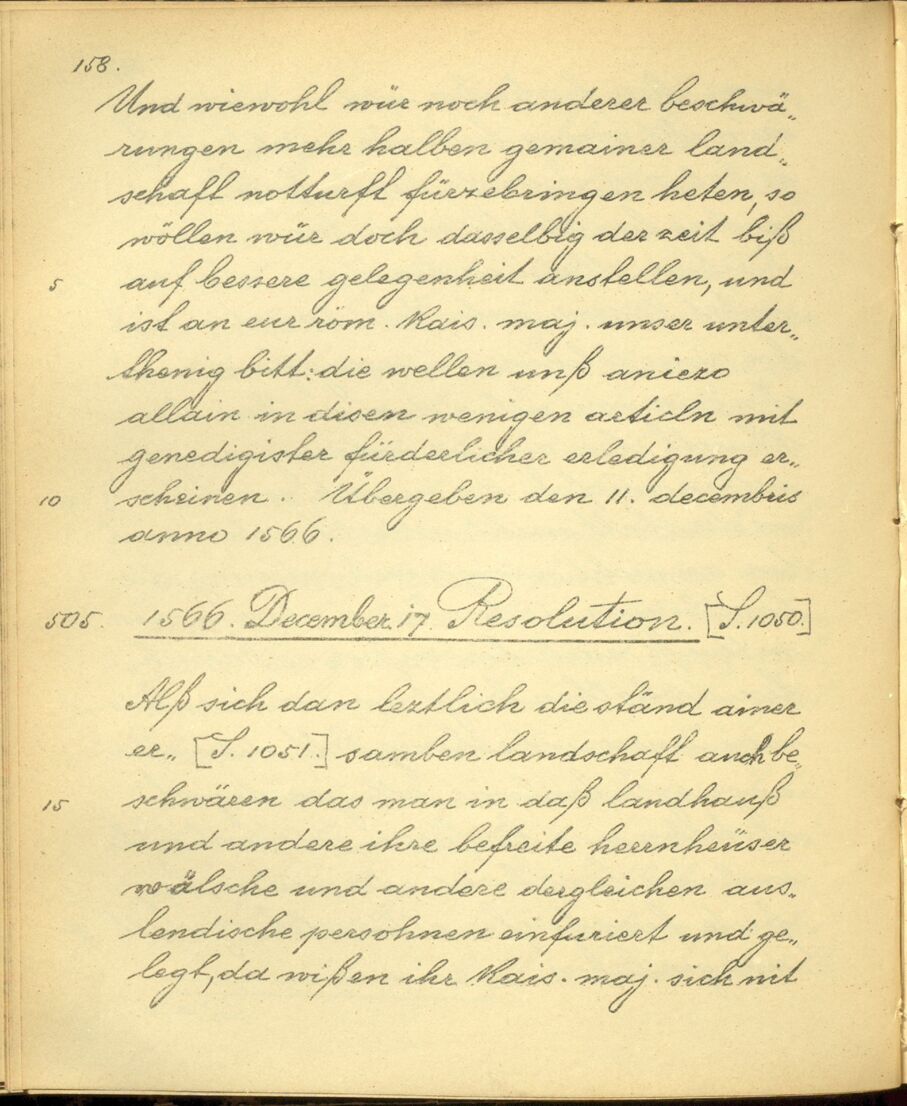 158.
Und wiewohl wür noch anderer beschwä„
rungen mehr halben gemainer land„
schaft notturft fürzebringen heten, so
wöllen wür doch dasselbig der zeit biß
5 auf bessere gelegenheit anstellen, und
ist an eur röm. Kais. maj. unser unter„
thenig bitt: die wellen unß aniezo
allain in disen wenigen articln mit
genedigister fürderlicher erledigung er„
10 scheinen. Übergeben den 11. decembris
anno 1566.
505. 1566. December 17. Resolution. [S. 1050.]
Alß sich dan leztlich die ständ ainer
er„ [S. 1051.] samben landschaft auch be„
15 schwären das man in daß landhauß
und andere ihre befreite herrnheüser
wälsche und andere dergleichen aus„
lendische persohnen einfuriert und ge„
legt, da wißen ihr Kais. maj. sich nit